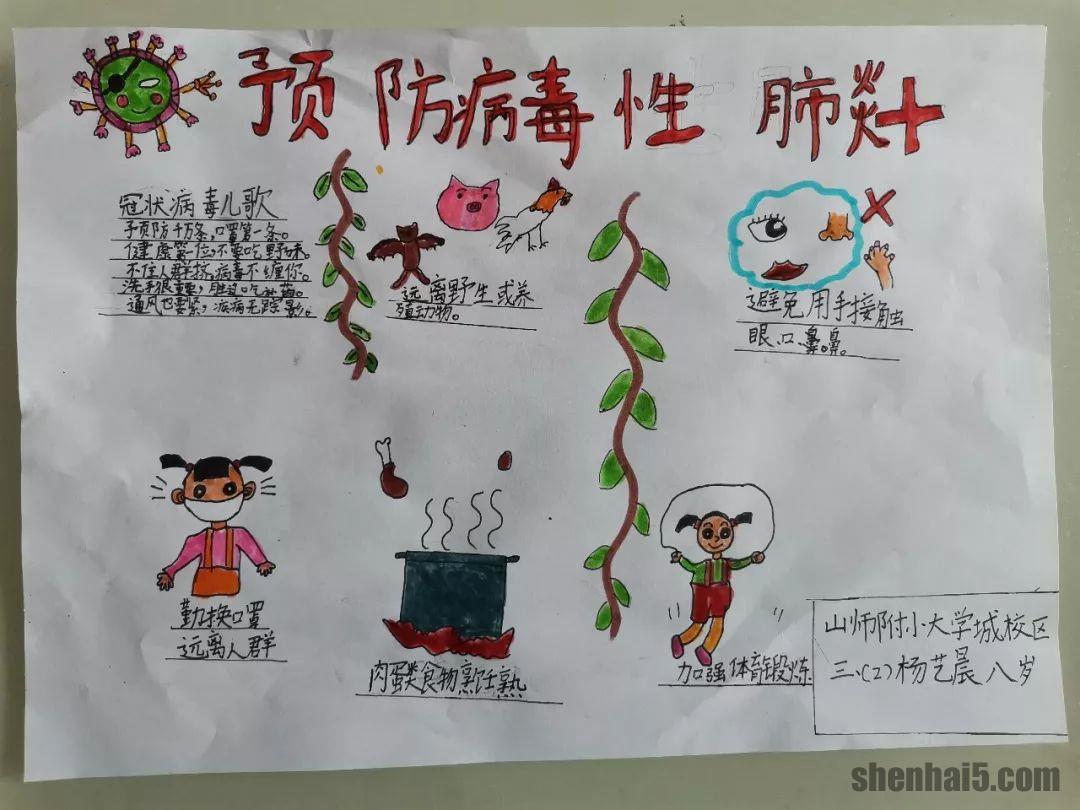 预防病毒性肺炎
冠状病毒儿歌
予页防千万条,口罩第一条。
健康第一位,不要吃野味。
不住人群挤,病毒不缠你。
洗手很重要,胜过吃补药。
通风也要紧,疾病无踪影。
远离野生或养
殖动物。
避免用手接触
眼、口、鼻。
勤换口罩
远离人群
肉蛋类食物烹饪熟
加强体育锻炼
山师附小大学城校区
三、(2)杨艺晨八岁
shenhai5.com